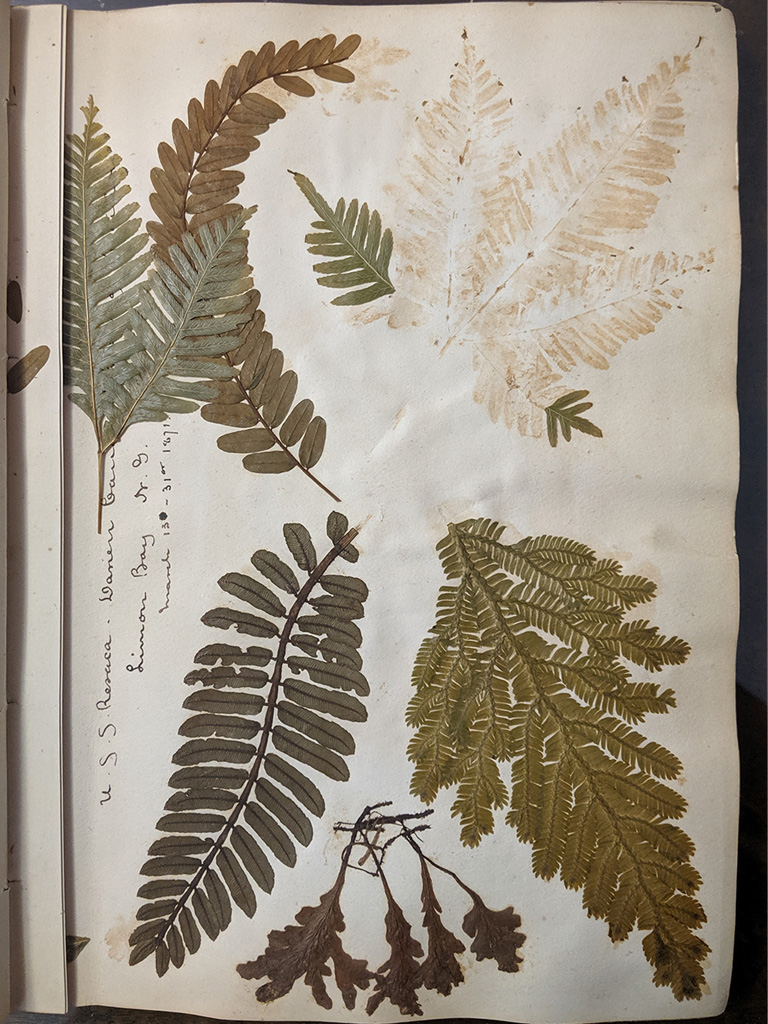 U.S.S. Resaca. Darien
Limon Bay N. G.
March 13 - 31st 1871